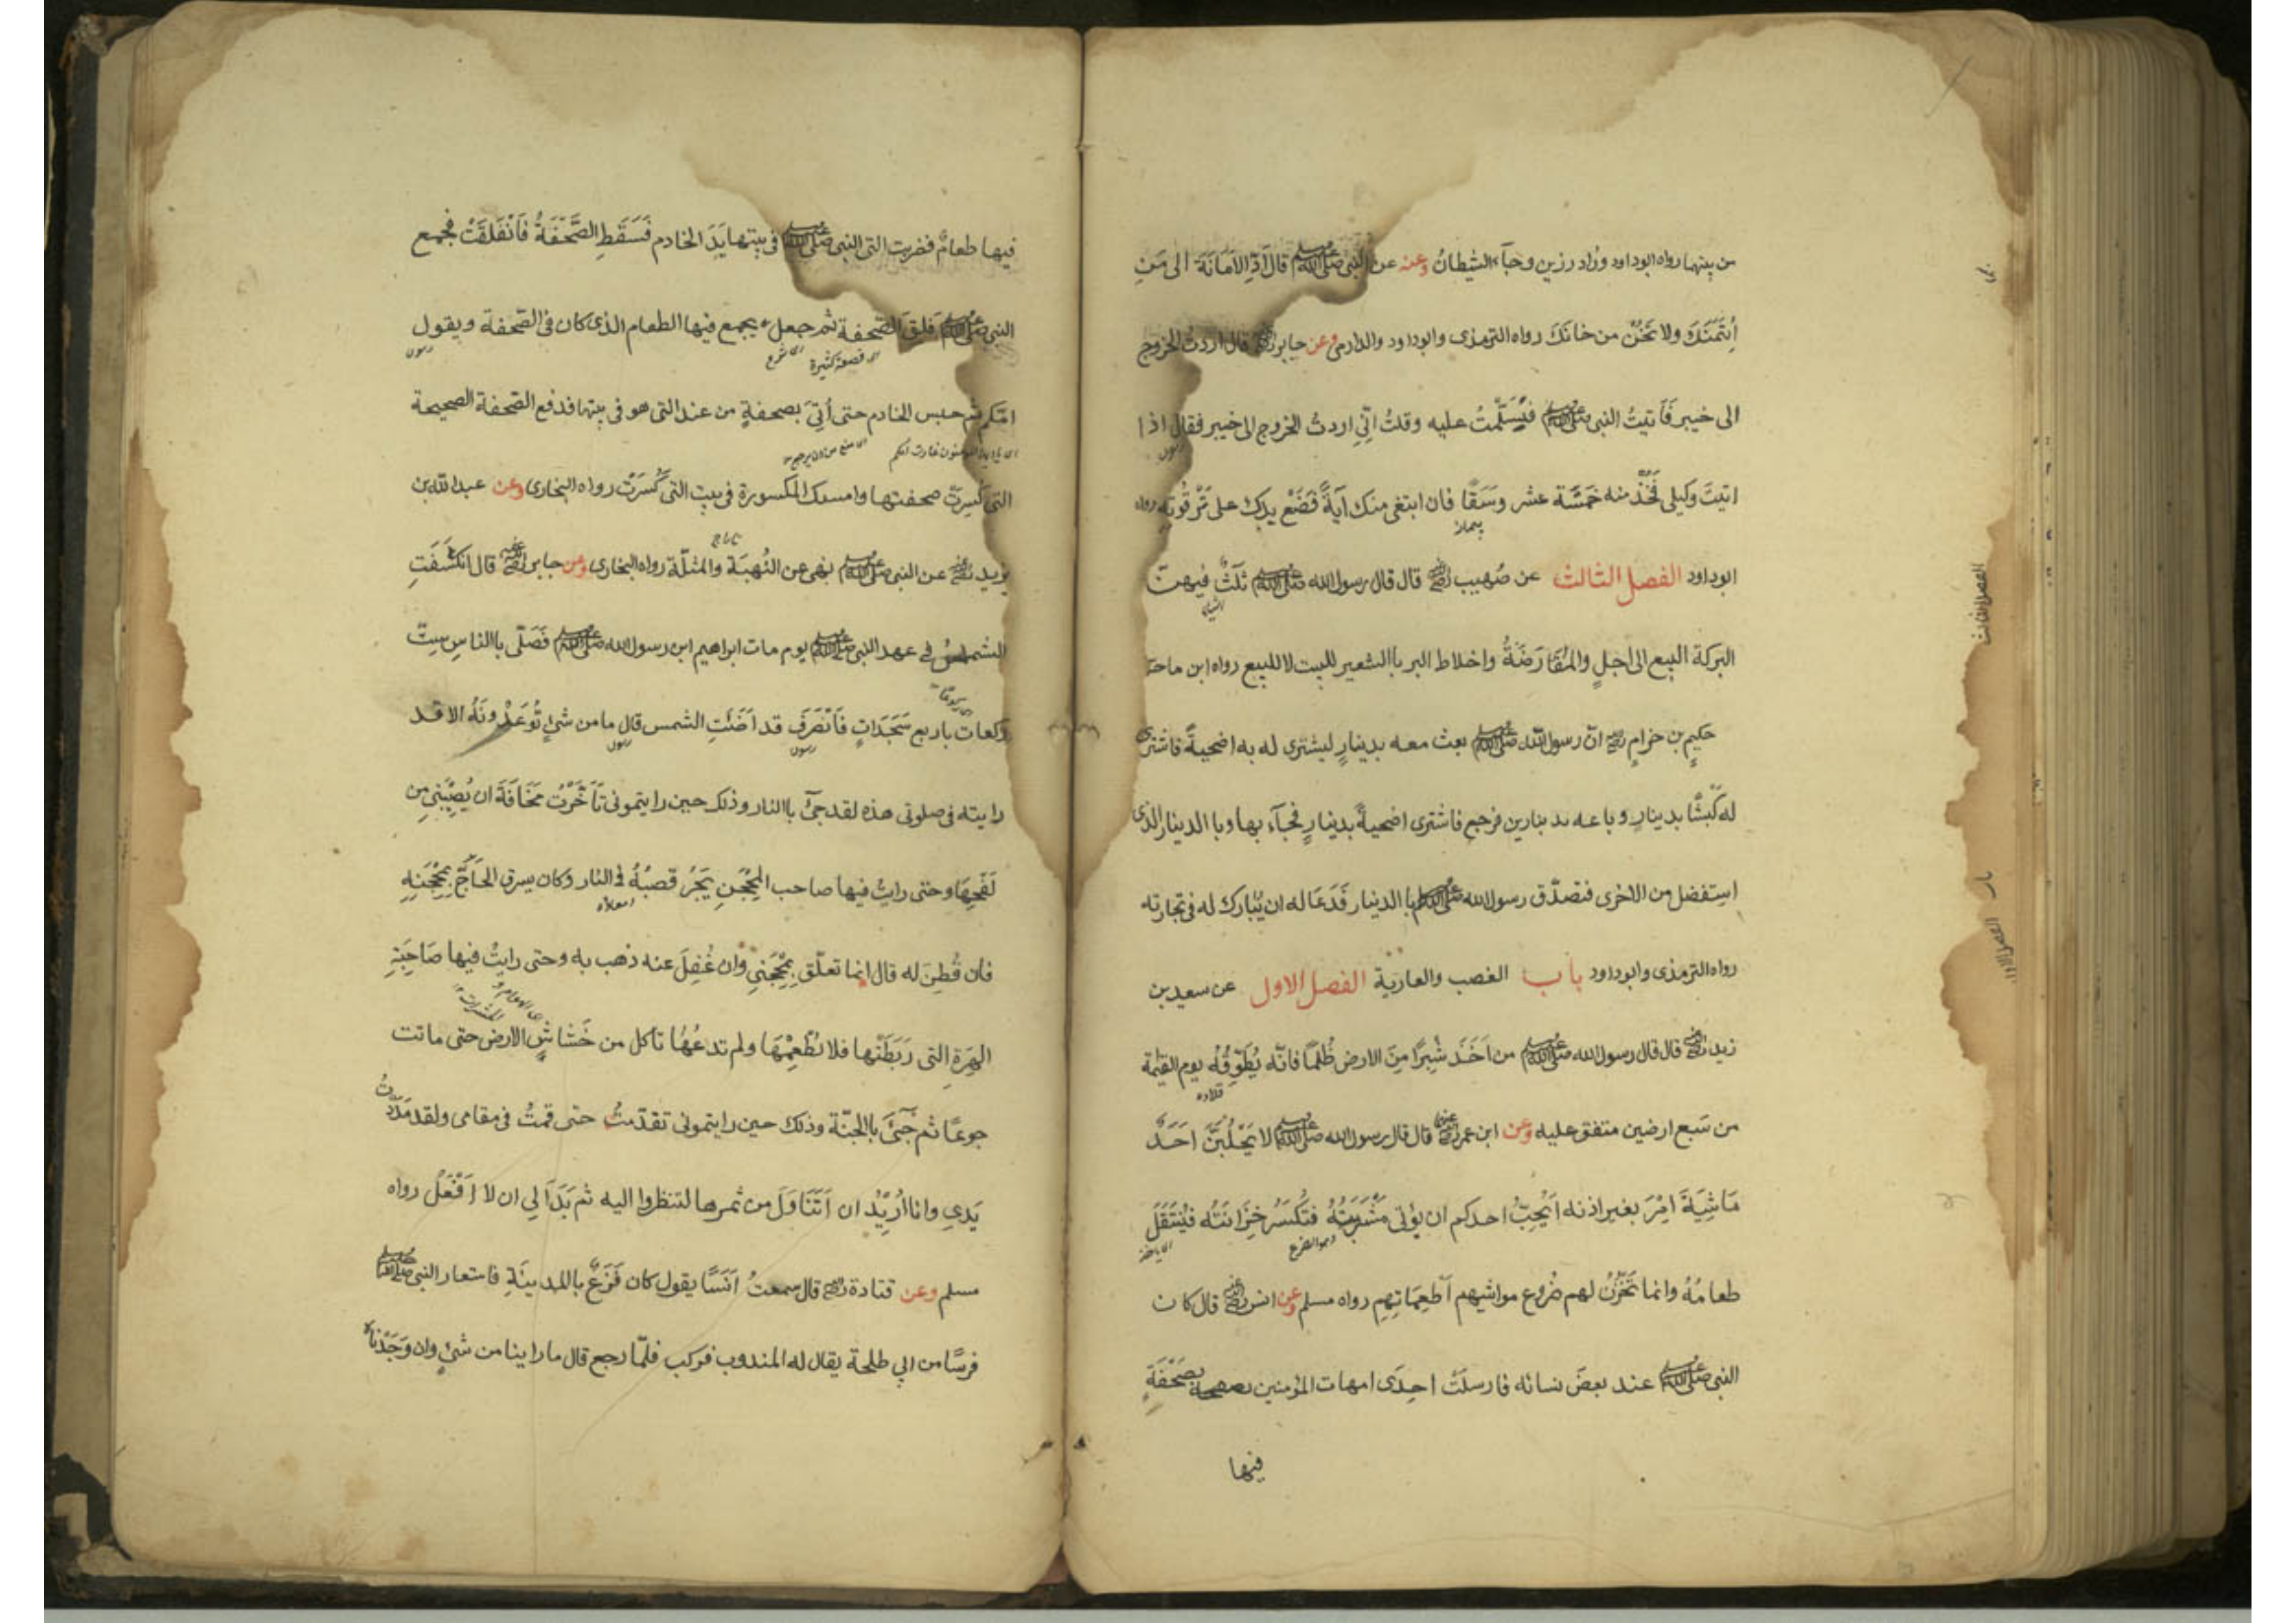 من بينهما رواه ابوداود وزاد رزين وجآء الشيطان وعنه عن النبى صلى الله عليه وسلم قال اَدِّ الاَمَانَةَ الى مَنِ
اُئتَمَنَكَ ولا تَخُنْ من خانكَ رواه الترمذى وابوداود والدارمى وعن جابر رضى الله عنه قال اردتُ الخروج
الى خيبر فَاَتيتُ النبى صلى الله عليه وسلم فسَلَّمتُ عليه وقلتُ انّى اردتُ الخروج الى خيبر فقال اذا
اتيتَ وكيلى فَخُذْ منه خَمْسَةَ عشر وَسَقًا فان ابتغى منك آيةً فَضَعْ يدك على تَرْقُوَتِه رواه
ابوداود الفصل الثالث عن صُهيب رضى الله عنه قال قال رسول الله صلى الله عليه وسلم ثلٰثٌ فيهنّ
البركة البيع الى اجلٍ والمُقَارَضَةُ واخلاط البر باالشعير للبيت لا للبيع رواه ابن ماجة
حَكِيمٍ بن حزامٍ رضى انّ رسول الله صلى الله عليه وسلم بعث معه بدينارٍ ليشترى له به اضحيةً فاشترى
له كَبْشًا بدينارٍ وباعه بدينارين فرجع فاشترى اضحيةً بدينارٍ فجآء بها وباالدينار الذى
استفضل من الاخرى فتصدّق رسول الله صلى الله عليه وسلم باالدينار فَدَعَا له ان يُبارك له فى تجارته
رواه الترمذى وابوداود باب الغصب والعارية الفصل الاول عن سعيد بن
زيد رضى الله عنه قال قال رسول الله صلى الله عليه وسلم من اَخَذَ شِبرًا مِنَ الارض ظُلمًا فانّه يُطَوِّقُه يوم القيٰمة
من سَبع ارضين متفق عليه وعن ابن عمر رضى الله عنهما قال قال رسول الله صلى الله عليه وسلم لا يَحْلُبَنَّ اَحَدٌ
مَاشِيَةَ امْرَ بغير اذنه اَيُحِبُّ احدكم ان يؤتى مَشْرَبَتُهُ فتكسَرُ خِزَانَتُه فيُنتَقَلَ
طعامُهُ وانما تَخْزُنُ لهم ضُروع مواشيهم اَطعِمَاتِهِم رواه مسلم وعن انس رضى الله عنه قال كان
النبى صلى الله عليه وسلم عند بعضَ نسائه فارسلَتْ احِدَى امهات المؤمنين بصَحْفَةٍ
فيها
فيها طعامٌ فضربت التى النبى صلى الله عليه وسلم فى بيتها يَدَ الخادم فَسَقَطِ الصَّحْفَةُ فَانْفَلَقَتْ فجمع
النبى صلى الله عليه وسلم فِلَقَ الصّحفة ثم جعل يجمع فيها الطعام الذى كان فى الصّحفة ويقول
امّكم ثم حبس الخادم حتى اُتِىَ بصحفةٍ من عند التى هو فى بيتها فدفع الصّحفة الصحيحة
التى كُسِرَتْ صحفتها وامسك المكسورة فى بيت التى كَسَرَتْ رواه البخارى وعن عبدالله بن
يزيد رضى عن النبى صلى الله عليه وسلم نهى عن النُهبَة والمثلَة رواه البخارى وعن جابر رضى الله عنه قال انكَسَفَتِ
الشمسُ فى عهد النبى صلى الله عليه وسلم يوم مات ابراهيم ابن رسول الله صلى الله عليه وسلم فَصَلّى باالناس سِتّ
ركعات باربع سَجَدَاتٍ فَانْصَرَفَ قد اَضَتِ الشمس قال ما من شئٍ تُوعَدُونَهُ الا قد
رايته فى صلوتى هذه لقد جئَ باالنار وذلك حين رايتمونى تَاَخَّرْتُ مَخَافَةَ ان يُصِيْبَنِى من
لَفْحِهَا وحتى رايتُ فيها صاحب المِحْجَنِ يَجُرُ قصبَهُ فى النار وكان يسرق الحَآجَّ بِمِحْجَنِهِ
فان فُطِنَ له قال انما تعلّق بِمِحْجَنِى وان غُفِلَ عنه ذهب به وحتى رايتُ فيها صَاحِبَةِ
الهِرَةِ التى رَبَطَتْها فلا تُطْعِمْهَا ولم تدعْهَا تاكل من خَشَاشِ الارض حتى ماتت
جوعًا ثم جَئَ باالجنّة وذلك حين رايتمونى تقدّمتُ حتى قمتُ فى مقامى ولقد مَدَدْتُ
يَدِى وانا اُرِيْدُ ان اَتَنَاوَلَ من ثمرها لتنظروا اليه ثم بَدَا لِى ان لا اَفْعَلُ رواه
مسلم وعن قتادة رضى قال سمعتُ اَنَسًا يقول كان فَزَعٌ باالمدينَةِ فاستعار النبى صلى الله عليه وسلم
فرسًا من ابى طلحة يقال له المندوب فركب فلمّا رجع قال ما راينا من شئٍ وان وَجَدْنَاه